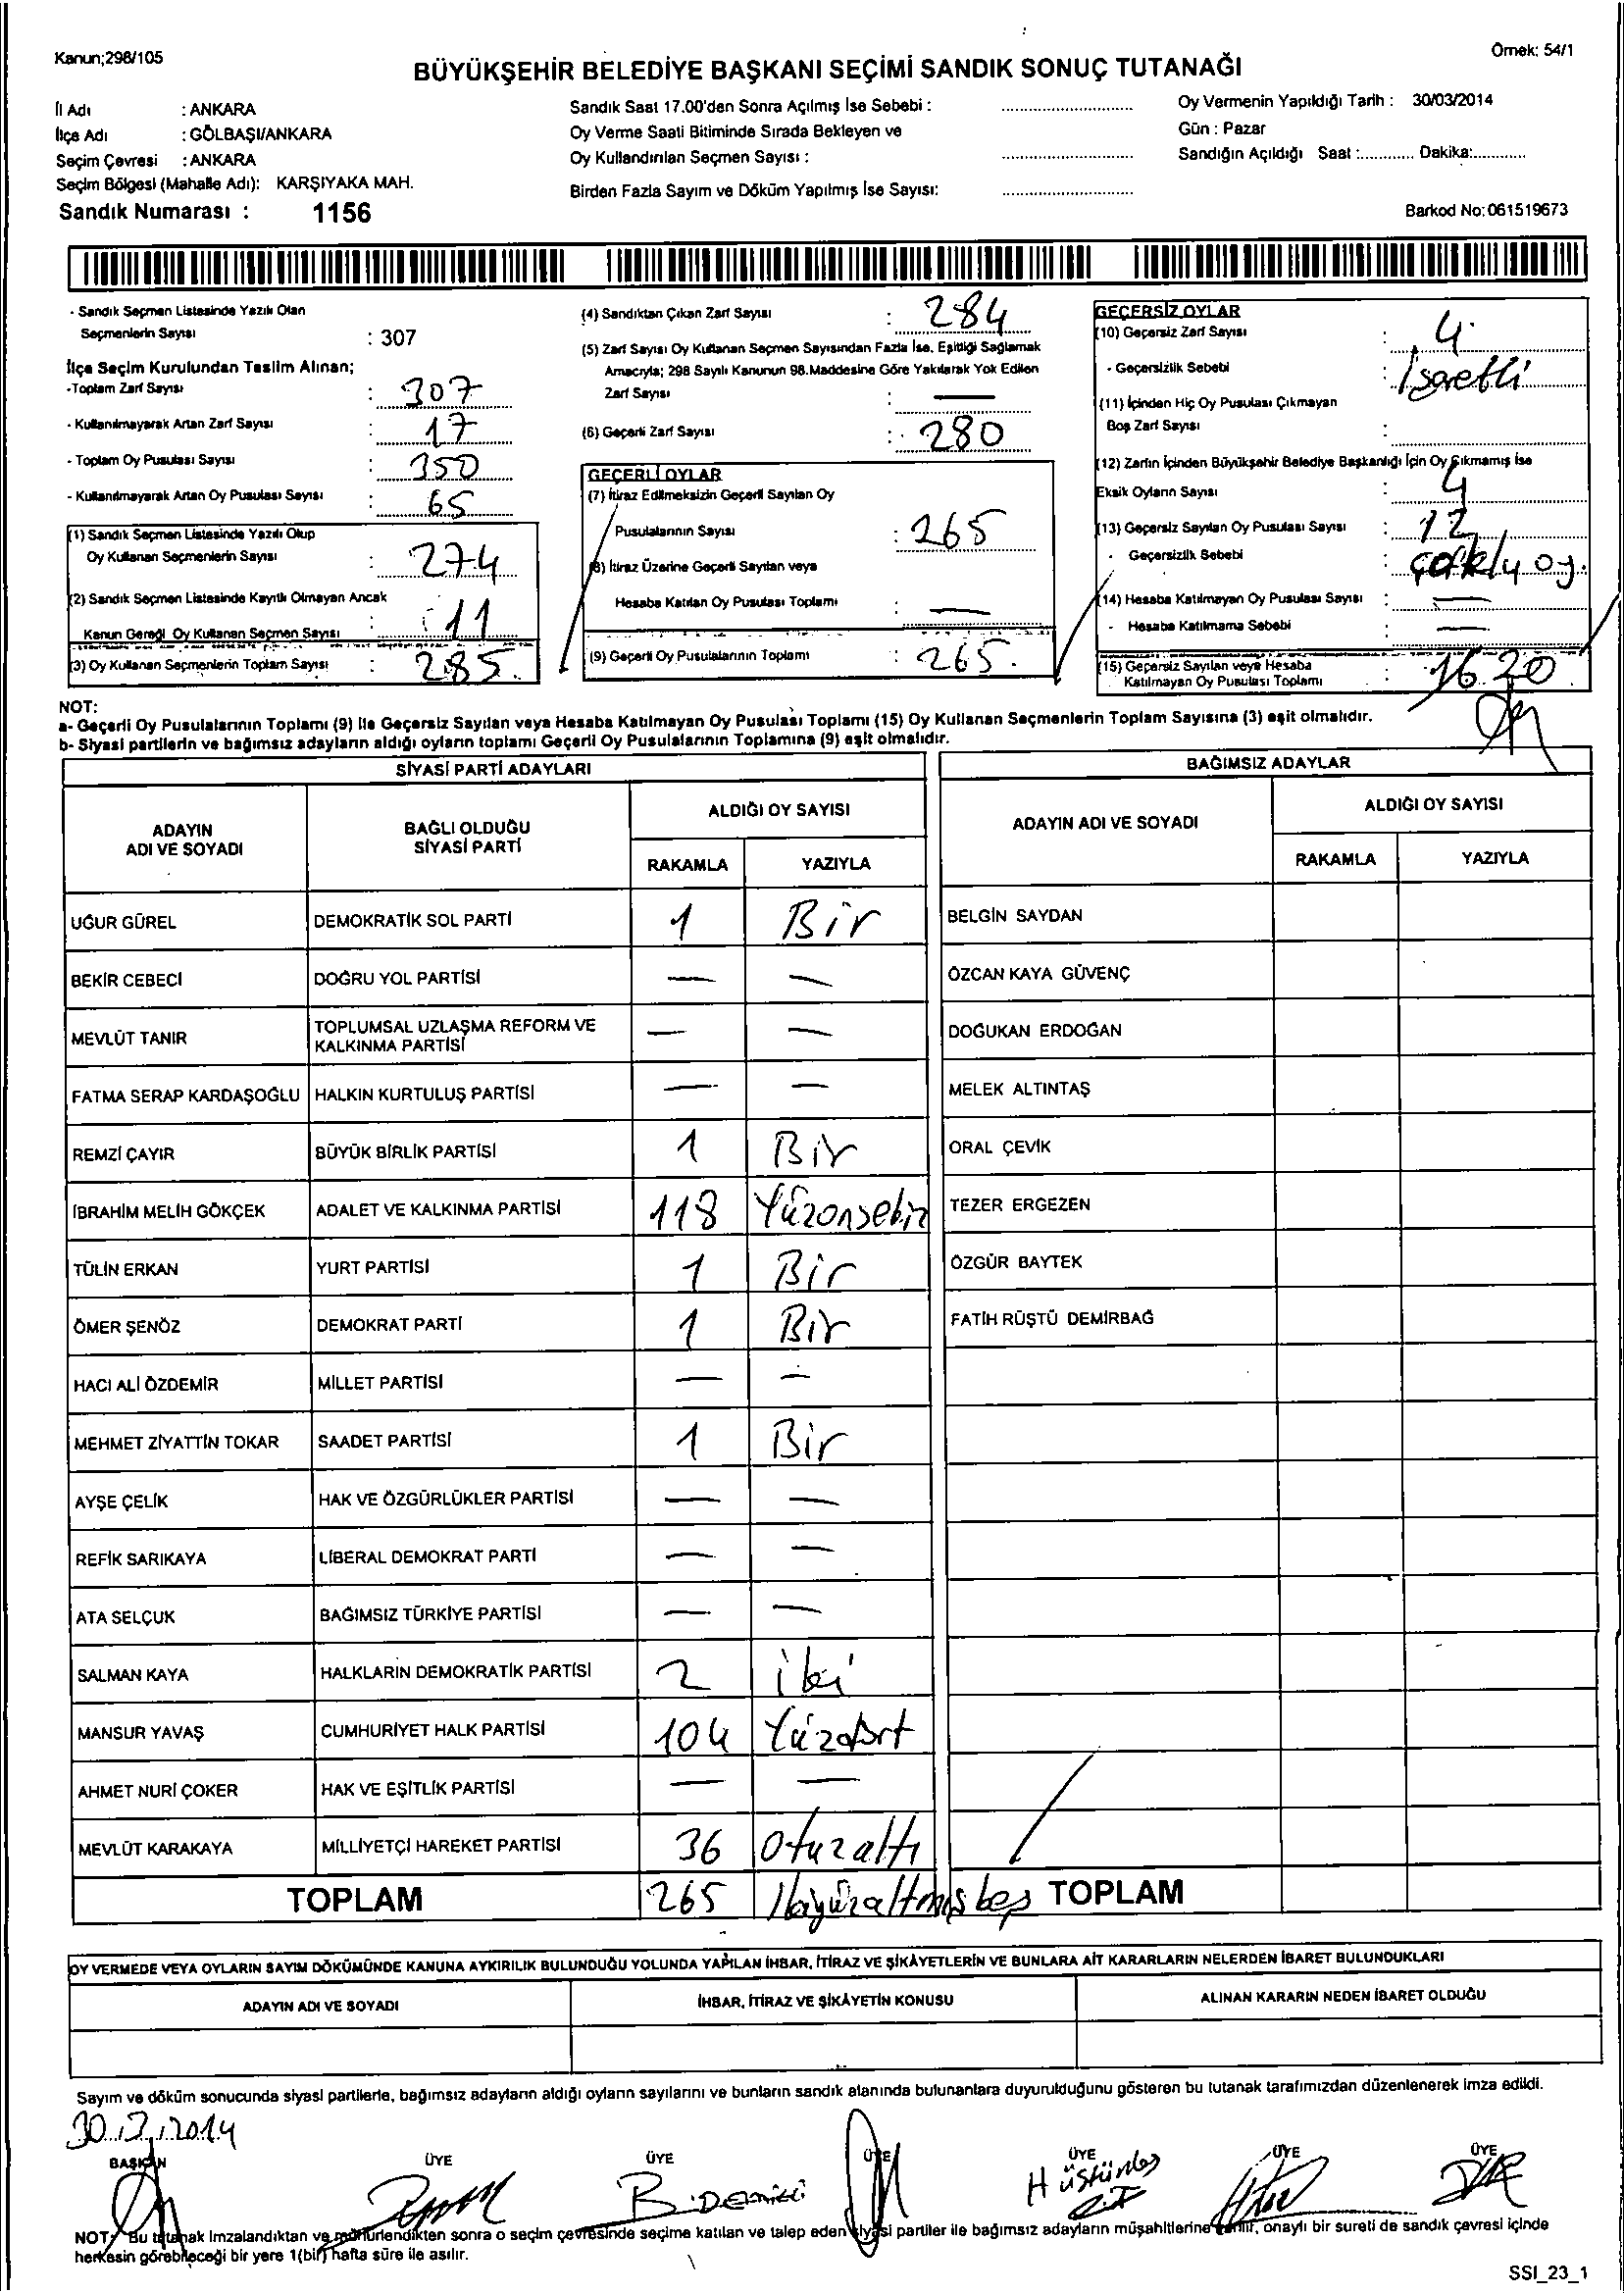 Kanun;298/105
Örnek: 54/1
BÜYÜKŞEHİR BELEDİYE BAŞKANI SEÇİMİ SANDIK SONUÇ TUTANAĞI
İl Adı : ANKARA
İlçe Adı : GÖLBAŞI/ANKARA
Seçim Çevresi : ANKARA
Seçim Bölgesi (Mahalle Adı): KARŞIYAKA MAH.
Sandık Numarası : 1156
Sandık Saat 17.00'den Sonra Açılmış İse Sebebi : ..............................
Oy Verme Saati Bitiminde Sırada Bekleyen ve
Oy Kullandırılan Seçmen Sayısı : ..............................
Birden Fazla Sayım ve Döküm Yapılmış İse Sayısı: ..............................
Oy Vermenin Yapıldığı Tarih : 30/03/2014
Gün : Pazar
Sandığın Açıldığı Saat :............ Dakika:............
Barkod No:061519673
- Sandık Seçmen Listesinde Yazılı Olan
Seçmenlerin Sayısı : 307
İlçe Seçim Kurulundan Teslim Alınan;
-Toplam Zarf Sayısı : 307
- Kullanılmayarak Artan Zarf Sayısı : 17
- Toplam Oy Pusulası Sayısı : 350
- Kullanılmayarak Artan Oy Pusulası Sayısı : 65
(1) Sandık Seçmen Listesinde Yazılı Olup
Oy Kullanan Seçmenlerin Sayısı : 274
(2) Sandık Seçmen Listesinde Kayıtlı Olmayan Ancak
Kanun Gereği Oy Kullanan Seçmen Sayısı : 11
(3) Oy Kullanan Seçmenlerin Toplam Sayısı : 285.
(4) Sandıktan Çıkan Zarf Sayısı : 284
(5) Zarf Sayısı Oy Kullanan Seçmen Sayısından Fazla İse, Eşitliği Sağlamak
Amacıyla; 298 Sayılı Kanunun 98.Maddesine Göre Yakılarak Yok Edilen
Zarf Sayısı : —
(6) Geçerli Zarf Sayısı : 280
GEÇERLİ OYLAR
(7) İtiraz Edilmeksizin Geçerli Sayılan Oy
Pusulalarının Sayısı : 265
(8) İtiraz Üzerine Geçerli Sayılan veya
Hesaba Katılan Oy Pusulası Toplamı : —
(9) Geçerli Oy Pusulalarının Toplamı : 265.
GEÇERSİZ OYLAR
(10) Geçersiz Zarf Sayısı : 4
- Geçersizlik Sebebi : İşaretli
(11) İçinden Hiç Oy Pusulası Çıkmayan
Boş Zarf Sayısı :
(12) Zarfın İçinden Büyükşehir Belediye Başkanlığı İçin Oy Çıkmamış İse
Eksik Oyların Sayısı : 4
(13) Geçersiz Sayılan Oy Pusulası Sayısı : 12
- Geçersizlik Sebebi :
(14) Hesaba Katılmayan Oy Pusulası Sayısı : —
- Hesaba Katılmama Sebebi : —
(15) Geçersiz Sayılan veya Hesaba
Katılmayan Oy Pusulası Toplamı : 16 20
NOT:
a- Geçerli Oy Pusulalarının Toplamı (9) ile Geçersiz Sayılan veya Hesaba Katılmayan Oy Pusulası Toplamı (15) Oy Kullanan Seçmenlerin Toplam Sayısına (3) eşit olmalıdır.
b- Siyasi partilerin ve bağımsız adayların aldığı oyların toplamı Geçerli Oy Pusulalarının Toplamına (9) eşit olmalıdır.
SİYASİ PARTİ ADAYLARI
ADAYIN ADI VE SOYADI
BAĞLI OLDUĞU SİYASİ PARTİ
ALDIĞI OY SAYISI
RAKAMLA YAZIYLA
UĞUR GÜREL DEMOKRATİK SOL PARTİ 1 Bir
BEKİR CEBECİ DOĞRU YOL PARTİSİ — —
MEVLÜT TANIR TOPLUMSAL UZLAŞMA REFORM VE KALKINMA PARTİSİ — —
FATMA SERAP KARDAŞOĞLU HALKIN KURTULUŞ PARTİSİ — —
REMZİ ÇAYIR BÜYÜK BİRLİK PARTİSİ 1 Bir
İBRAHİM MELİH GÖKÇEK ADALET VE KALKINMA PARTİSİ 118 Yüzonsekiz
TÜLİN ERKAN YURT PARTİSİ 1 Bir
ÖMER ŞENÖZ DEMOKRAT PARTİ 1 Bir
HACI ALİ ÖZDEMİR MİLLET PARTİSİ — —
MEHMET ZİYATTİN TOKAR SAADET PARTİSİ 1 Bir
AYŞE ÇELİK HAK VE ÖZGÜRLÜKLER PARTİSİ — —
REFİK SARIKAYA LİBERAL DEMOKRAT PARTİ — —
ATA SELÇUK BAĞIMSIZ TÜRKİYE PARTİSİ — —
SALMAN KAYA HALKLARIN DEMOKRATİK PARTİSİ 2 iki
MANSUR YAVAŞ CUMHURİYET HALK PARTİSİ 104 Yüzdört
AHMET NURİ ÇOKER HAK VE EŞİTLİK PARTİSİ — —
MEVLÜT KARAKAYA MİLLİYETÇİ HAREKET PARTİSİ 36 Otuzaltı
TOPLAM 265 İkiyüzaltmışbeş
BAĞIMSIZ ADAYLAR
ADAYIN ADI VE SOYADI
ALDIĞI OY SAYISI
RAKAMLA YAZIYLA
BELGİN SAYDAN
ÖZCAN KAYA GÜVENÇ
DOĞUKAN ERDOĞAN
MELEK ALTINTAŞ
ORAL ÇEVİK
TEZER ERGEZEN
ÖZGÜR BAYTEK
FATİH RÜŞTÜ DEMİRBAĞ
TOPLAM
OY VERMEDE VEYA OYLARIN SAYIM DÖKÜMÜNDE KANUNA AYKIRILIK BULUNDUĞU YOLUNDA YAPILAN İHBAR, İTİRAZ VE ŞİKÂYETLERİN VE BUNLARA AİT KARARLARIN NELERDEN İBARET BULUNDUKLARI
ADAYIN ADI VE SOYADI
İHBAR, İTİRAZ VE ŞİKÂYETİN KONUSU
ALINAN KARARIN NEDEN İBARET OLDUĞU
Sayım ve döküm sonucunda siyasi partilerle, bağımsız adayların aldığı oyların sayılarını ve bunların sandık alanında bulunanlara duyurulduğunu gösteren bu tutanak tarafımızdan düzenlenerek imza edildi.
30.3.2014
BAŞKAN ÜYE ÜYE ÜYE ÜYE ÜYE ÜYE
NOT: Bu tutanak imzalandıktan ve mühürlendikten sonra o seçim çevresinde seçime katılan ve talep eden siyasi partiler ile bağımsız adayların müşahitlerine verilir, onaylı bir sureti de sandık çevresi içinde
herkesin görebileceği bir yere 1(bir) hafta süre ile asılır.
SSI_23_1